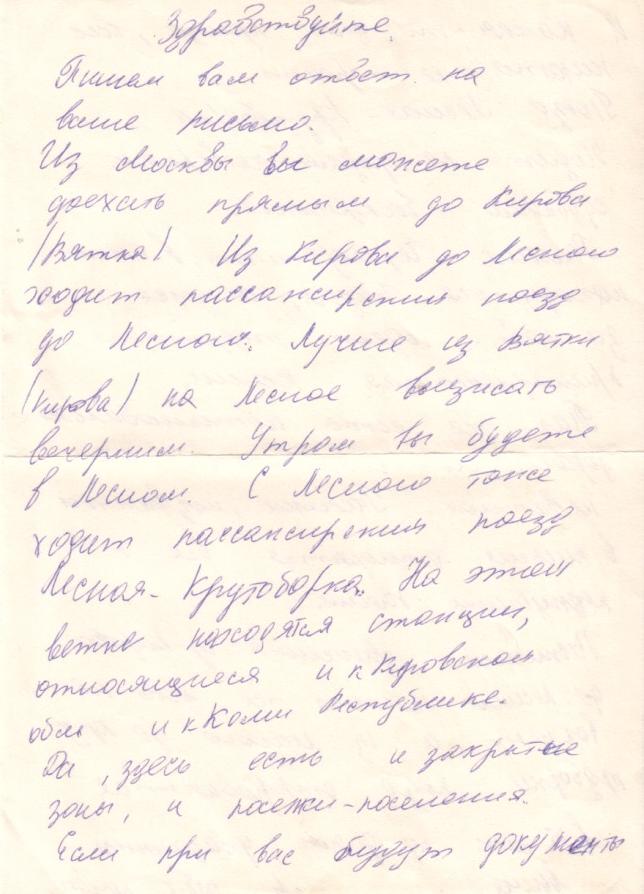 Здравствуйте.
Пишем вам ответ на
ваше письмо.
Из Москвы вы можете
доехать прямым до Кирова
(Вятка) Из Кирова до Лесного
ходит пассажирский поезд
до Лесного. Лучше из Вятки
(Кирова) на Лесное выезжать
вечерним. Утром вы будете
в Лесном. С Лесного тоже
ходит пассажирский поезд
Лесная-Крутоборка. На этой
ветке находятся станции,
относящиеся и к Кировской
обл и к Коми Республике.
Да, здесь есть и закрытые
зоны, и посёлки-поселения.
Если при вас будут документы